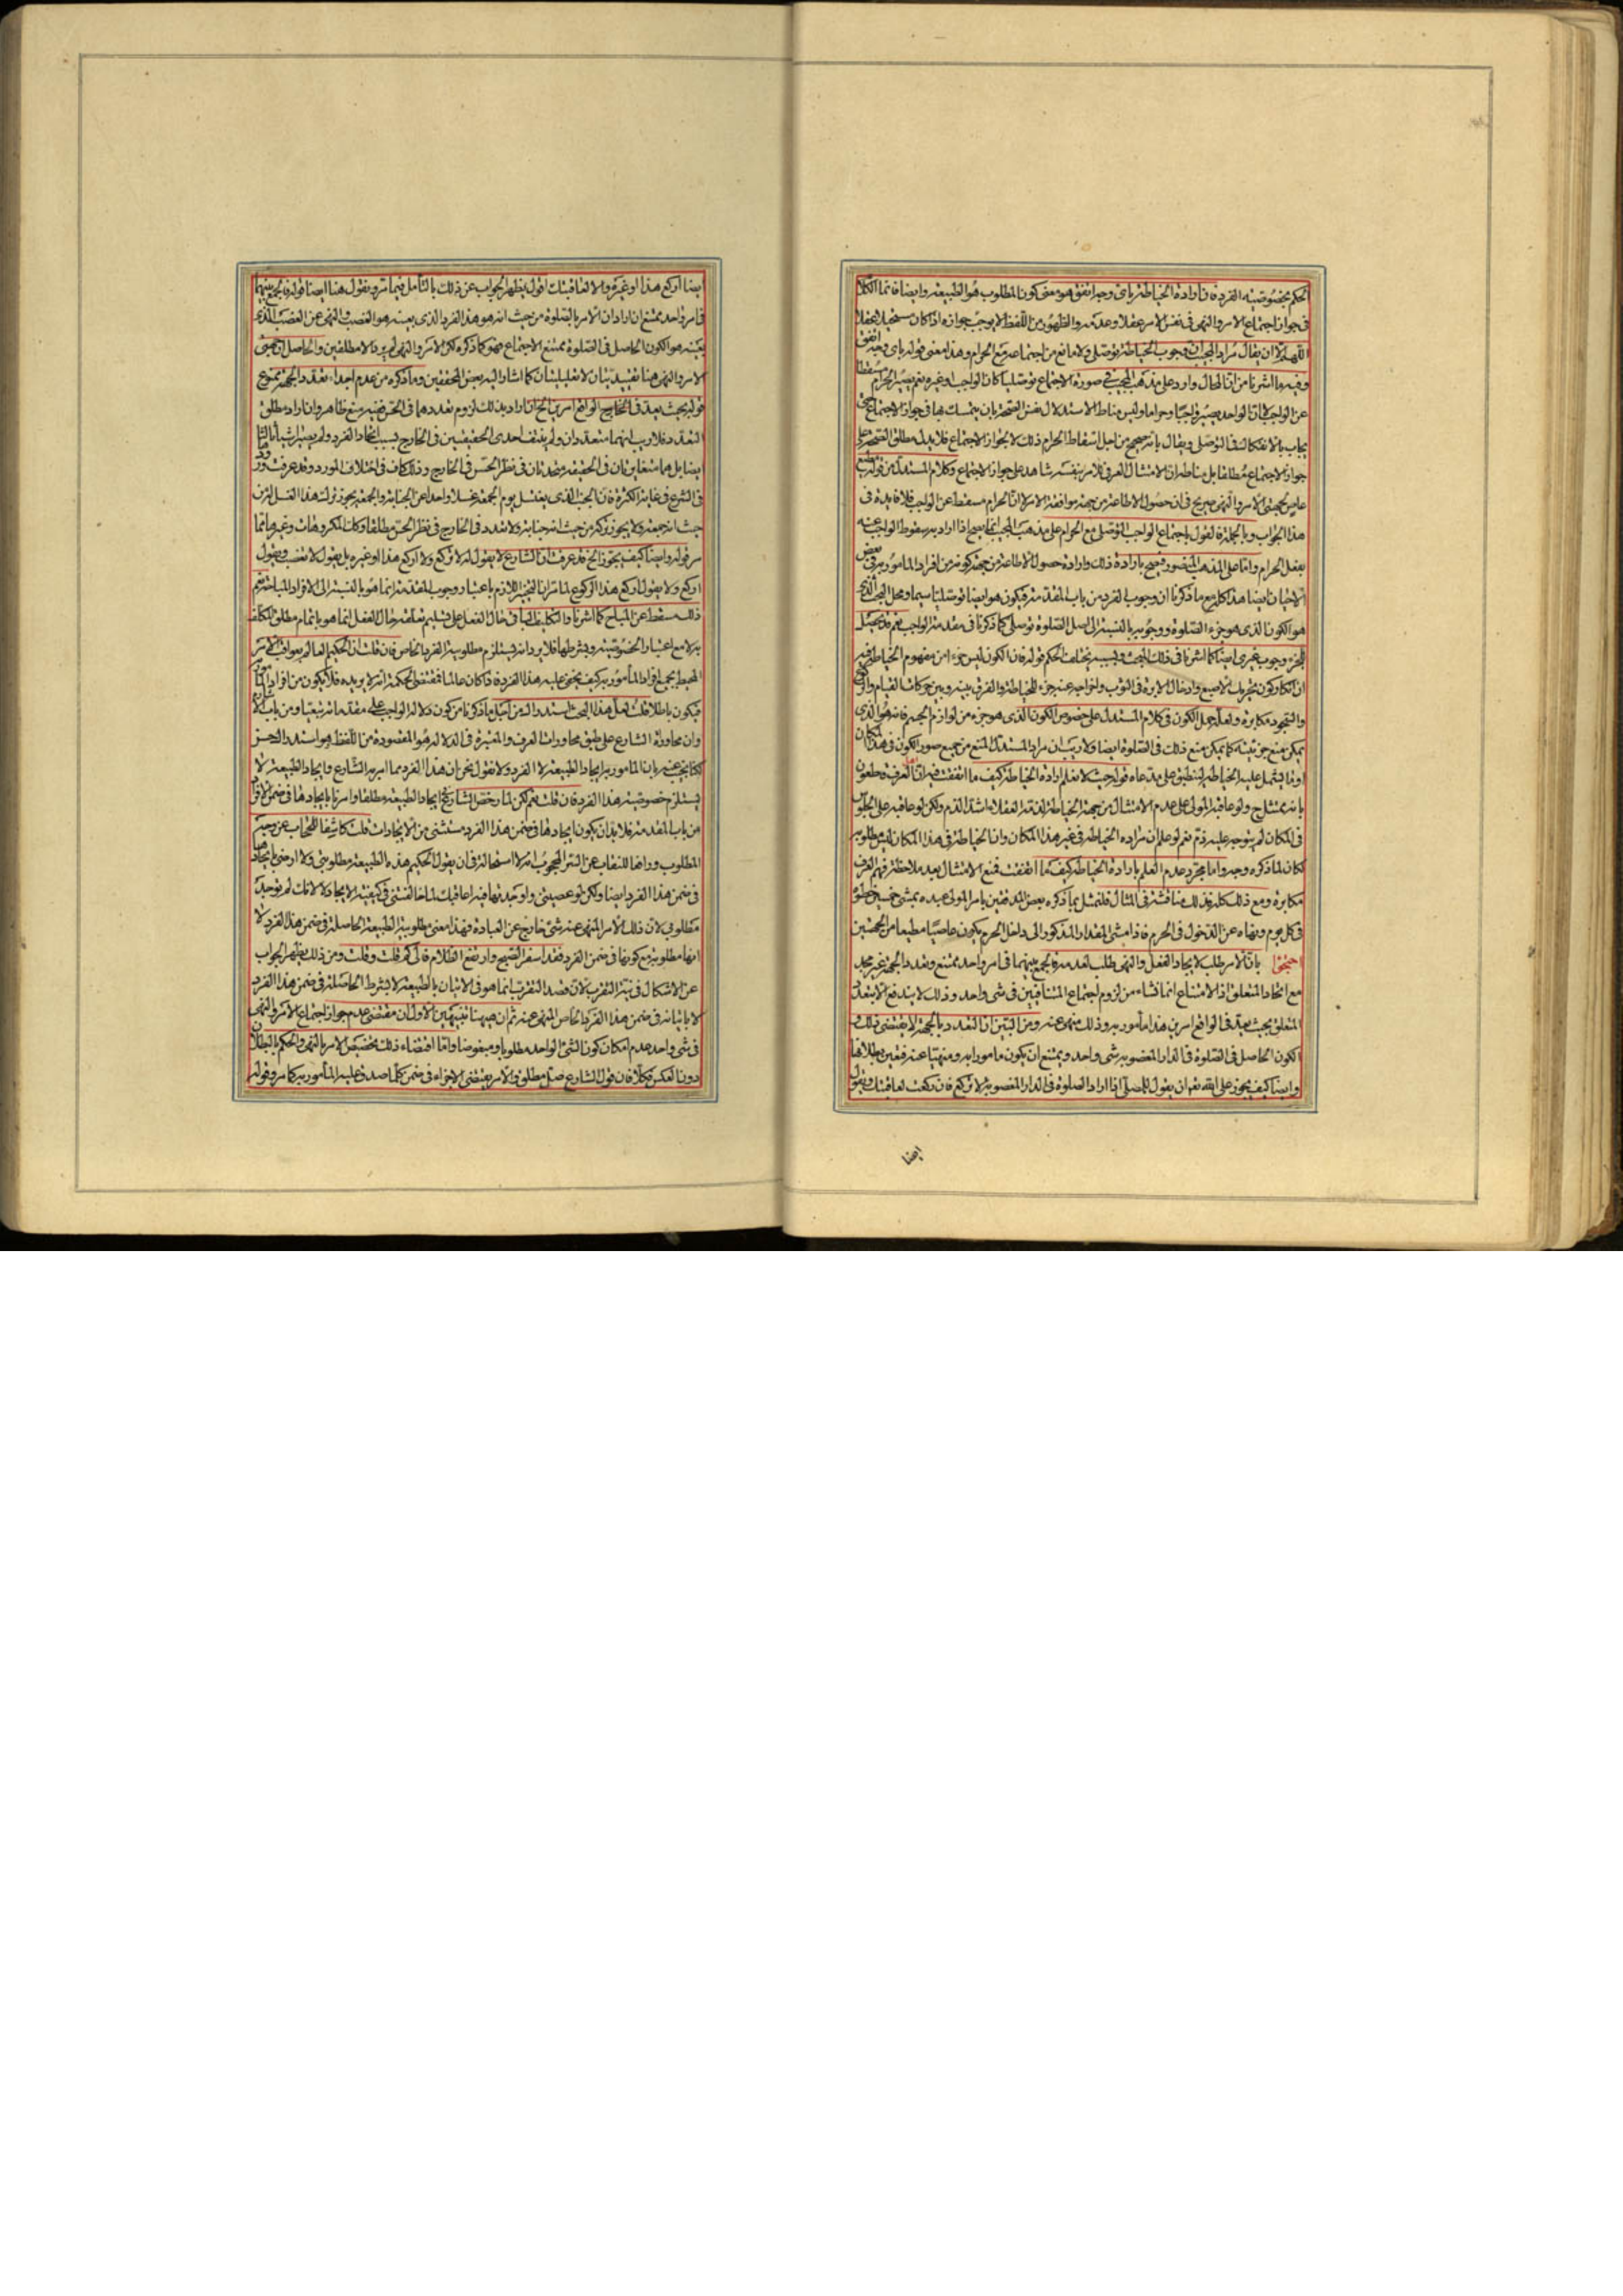 الحكم بخصوصية الفرد فارادة الخياطة باى وجه اتفق هو معنى كون المطلوب هو الطبيعة وايضا فانما الكلام
فى جواز اجتماع الامر والنهى فى نفس الامر عقلا وعدمه والظهور من اللفظ لا يوجب جوازه اذا كان مستحيلا عقلا
اللهم الا ان يقال مراد المجيب ان وجوب الخياطة توصلى ولا مانع من اجتماعه مع الحرام وهذا معنى قوله باى وجه اتفق
وفيه ما اشرنا من ان المحال وارد على مذهب المجيب فى صورة الاجتماع توصليا كان الواجب او غيره نعم يصير الحرام مسقطا
عن الواجب لا ان الواحد يصير واجبا وحراما وليس مناط الاستدلال نفس الصحة بان يتمسك بها فى جواز الاجتماع حتى
يجاب بالانفكاك فى التوصلى ويقال بانه صحيح من اجل اسقاط الحرام ذلك لا لجواز الاجتماع فلا يدل مطلق الصحة على
جواز الاجتماع مطلقا بل مناطه ان الامتثال العرفى للامر بنفسه شاهد على جواز الاجتماع وكلام المستدل من قوله مطيع
عاص لجهتى الامر والنهى صريح فى ان حصول الاطاعة من جهة موافقة الامر لا ان الحرام مسقط عن الواجب فلا فايدة فى
هذا الجواب وبالجملة القول باجتماع الواجب التوصلى مع الحرام على مذهب المجيب انما يصح اذا اراد به سقوط الواجب عنه
بفعل الحرام واما على المذهب المنصور فيصح بارادة ذلك وارادة حصول الاطاعة من جهة كونه من افراد المامور به فى بعض
الاحيان ايضا هذا كله مع ما ذكرنا ان وجوب الفرد من باب المقدمة فيكون هو ايضا توصليا سيما ومحل البحث الذى
هو الكون الذى هو جزء الصلوة ووجوبه بالنسبة الى اصل الصلوة توصلى كما ذكرنا فى مقدمة الواجب نعم قد يحصل
للجزء وجوب غيرى ايضا كما اشرنا فى ذلك المبحث وبسببه يختلف الحكم قوله فان الكون ليس جزءا من مفهوم الخياطة فيه
ان انكار كون تحريك الاصبع وادخال الابرة فى الثوب واخراجه عنه جزء للخياطة والفرق بينه وبين حركات القيام والركوع
والسجود مكابرة ولعله حمل الكون فى كلام المستدل على خصوص الكون الذى هو جزء من لوازم الجسم فانه هو الذى
يمكن منع جزئيته كما يمكن منع ذلك فى الصلوة ايضا ولا ريب ان مراد المستدل المنع من جميع صور الكون فى هذا المكان
او ما يشمل عليه الخياطة لينطبق على مدعاه قوله حيث لا نعلم ارادة الخياطة كيف ما اتفقت فيه ان العرف قاطعون
بانه ممتثل ح ولو عاقبه المولى على عدم الامتثال من جهة الخياطة لذمه العقلاء اشد الذم ولكن لو عاقبه على الجلوس
فى المكان لم يتوجه عليه ذم نعم لو علم ان مراده الخياطة فى غير هذا المكان وان الخياطة فى هذا المكان ليس مطلوبه
لكان لما ذكره وجه واما مجرد عدم العلم بارادة الخياطة كيف ما اتفقت فمنع الامتثال بعد ملاحظة فهم العرف
مكابرة ومع ذلك كله فذلك مناقشة فى المثال فلنمثل بما ذكره بعض المدققين بامر المولى عبده بمشى خمسين خطوة
فى كل يوم ونهاه عن الدخول فى الحرم فاذا مشى المقدار المذكور الى داخل الحرم يكون عاصيا مطيعا من الجهتين
احتجوا بان الامر طلب لايجاد الفعل والنهى طلب لعدمه فالجمع بينهما فى امر واحد ممتنع وتعدد الجهة غير مجد
مع اتحاد المتعلق اذ الامتناع انما نشاء من لزوم اجتماع المتنافيين فى شى واحد وذلك لا يندفع الا بتعدد
المتعلق بحيث يعد فى الواقع امرين هذا مامور به وذلك منهى عنه ومن البين ان التعدد بالجهة لا يقتضى ذلك و
الكون الحاصل فى الصلوة فى الدار المغصوبة شى واحد ويمتنع ان يكون مامورا به ومنهيا عنه فتعين بطلانها
وايضا كيف يجوز على الله تعم ان يقول للمصلى اذا اراد الصلوة فى الدار المغصوبة لا تركع فان ركعت لعاقبتك ويقول
ايضا
ايضا اركع هذا او غيره والا لعاقبتك اقول يظهر الجواب عن ذلك بالتامل فيما مر ونقول هنا ايضا قوله فالجمع بينهما
فى امر واحد ممتنع ان اراد ان الامر بالصلوة من حيث انه هو هذا الفرد الذى بعينه هو الغصب والنهى عن الغصب الذى
بعينه هو الكون الحاصل فى الصلوة ممتنع الاجتماع فهو كما ذكره لكن الامر والنهى لم يردا الا مطلقين والحاصل ان جهتى
الامر والنهى هنا تقييديتان لا تعليليتان كما اشار اليه بعض المحققين وما ذكره من عدم اجداء تعدد الجهة ممنوع
قوله بحيث يعد فى الخارج الواقع امرين الخ ان اراد بذلك لزوم تعددهما فى الحس ففيه منع ظاهر وان اراد مطلق
التعدد فلا ريب انهما متعددان ولم ينتف احدى الحقيقتين فى الخارج بسبب اتحاد الفرد ولم يصيرا شيئا ثالثا
ايضا بل هما متغايرتان فى الحقيقة متحدتان فى نظر الحس فى الخارج وذلك كاف فى اختلاف المورد وقد عرفت وروده
فى الشرع فى غاية الكثرة فان الجنب الذى يغتسل يوم الجمعة غسلا واحدا عن الجنابة والجمعة يجوز ترك هذا الغسل له من
حيث انه جمعة ولا يجوز تركه من حيث انه جنابة ولا تعدد فى الخارج فى نظر الحس مطلقا وكذلك المكروهات وغيرها مما
مر قوله وايضا كيف يجوز الخ قد عرفت ان الشارع لا يقول له لا تركع ولا اركع هذا او غيره بل يقول لا تغصب ويقول
اركع ولا يقول اركع هذا الركوع لما مر ان التخيير اللازم باعتبار وجوب المقدمة انما هو بالنسبة الى الافراد المباحة نعم
ذلك مسقط عن المباح كما اشرنا والتكليف الباقى فى حال الفعل على تسليم تعلقه حال الفعل انما هو باتمام مطلق المكلف
به لا مع اعتبار الخصوصية وبشرطها فلا يرد انه يستلزم مطلوبية الفرد الخاص فان قلت ان الحكيم العالم بعواقب الامور
المحيط بجميع افراد المامور به كيف يخفى عليه هذا الفرد فاذا كان عالما فمقتضى الحكمة انه لا يريده فلا يكون من افراد المامور به
فيكون باطلا قلت لعل هذا البحث استدراك من اجل ما ذكرنا من كون دلالة الواجب على مقدماته تبعيا ومن باب الاشارة
وان محاورة الشارع على طبق محاورات العرف والمعتبرة فى الدلالة هو المقصودة من اللفظ هو استدراك حسن
لكنا نجيب عنه بان المامور به ايجاد الطبيعة لا الفرد ولا نقول نحن ان هذا الفرد مما امر به الشارع وايجاد الطبيعة لا
يستلزم خصوصية هذا الفرد فان قلت نعم لكن لما رخص الشارع ايجاد الطبيعة مطلقا وامرنا بايجادها فى ضمن الافراد
من باب المقدمة فلا بد ان يكون ايجادها فى ضمن هذا الفرد مستثنى من الايجادات قلت كاشفا للحجاب عن وجه
المطلوب ورافعا للنقاب عن السر المحجوب انه لا استحالة فى ان يقول الحكيم هذه الطبيعة مطلوبتى ولا ارضى بايجادها
فى ضمن هذا الفرد ايضا ولكن لو عصيتنى واوجدتها فيه اعاقبك لما خالفتنى فى كيفية الايجاد لا لانك لم توجد
مطلوبى لان ذلك الامر المنهى عنه شىء خارج عن العبادة فهذا معنى مطلوبية الطبيعة الحاصلة فى ضمن هذا الفرد لا
انها مطلوبة مع كونها فى ضمن الفرد فقد اسفر الصبح وارتفع الظلام فالى كم قلت وقلت ومن ذلك يظهر الجواب
عن الاشكال فى نية التقرب لان قصد التقرب انما هو فى الاتيان بالطبيعة لا بشرط الحاصلة فى ضمن هذا الفرد
لا باتيانه فى ضمن هذا الفرد الخاص المنهى عنه ثم ان هيهنا تنبيهين الاول ان مقتضى عدم جواز اجتماع الامر والنهى
فى شى واحد عدم امكان كون الشئ الواحد مطلوبا ومبغوضا واما اقتضاء ذلك تخصيص الامر بالنهى والحكم بالبطلان
دون العكس فكلا فان قول الشارع صل مطلق والامر يقتضى الاجزاء فى ضمن كلما صدق عليه المامور به كما مر وقوله